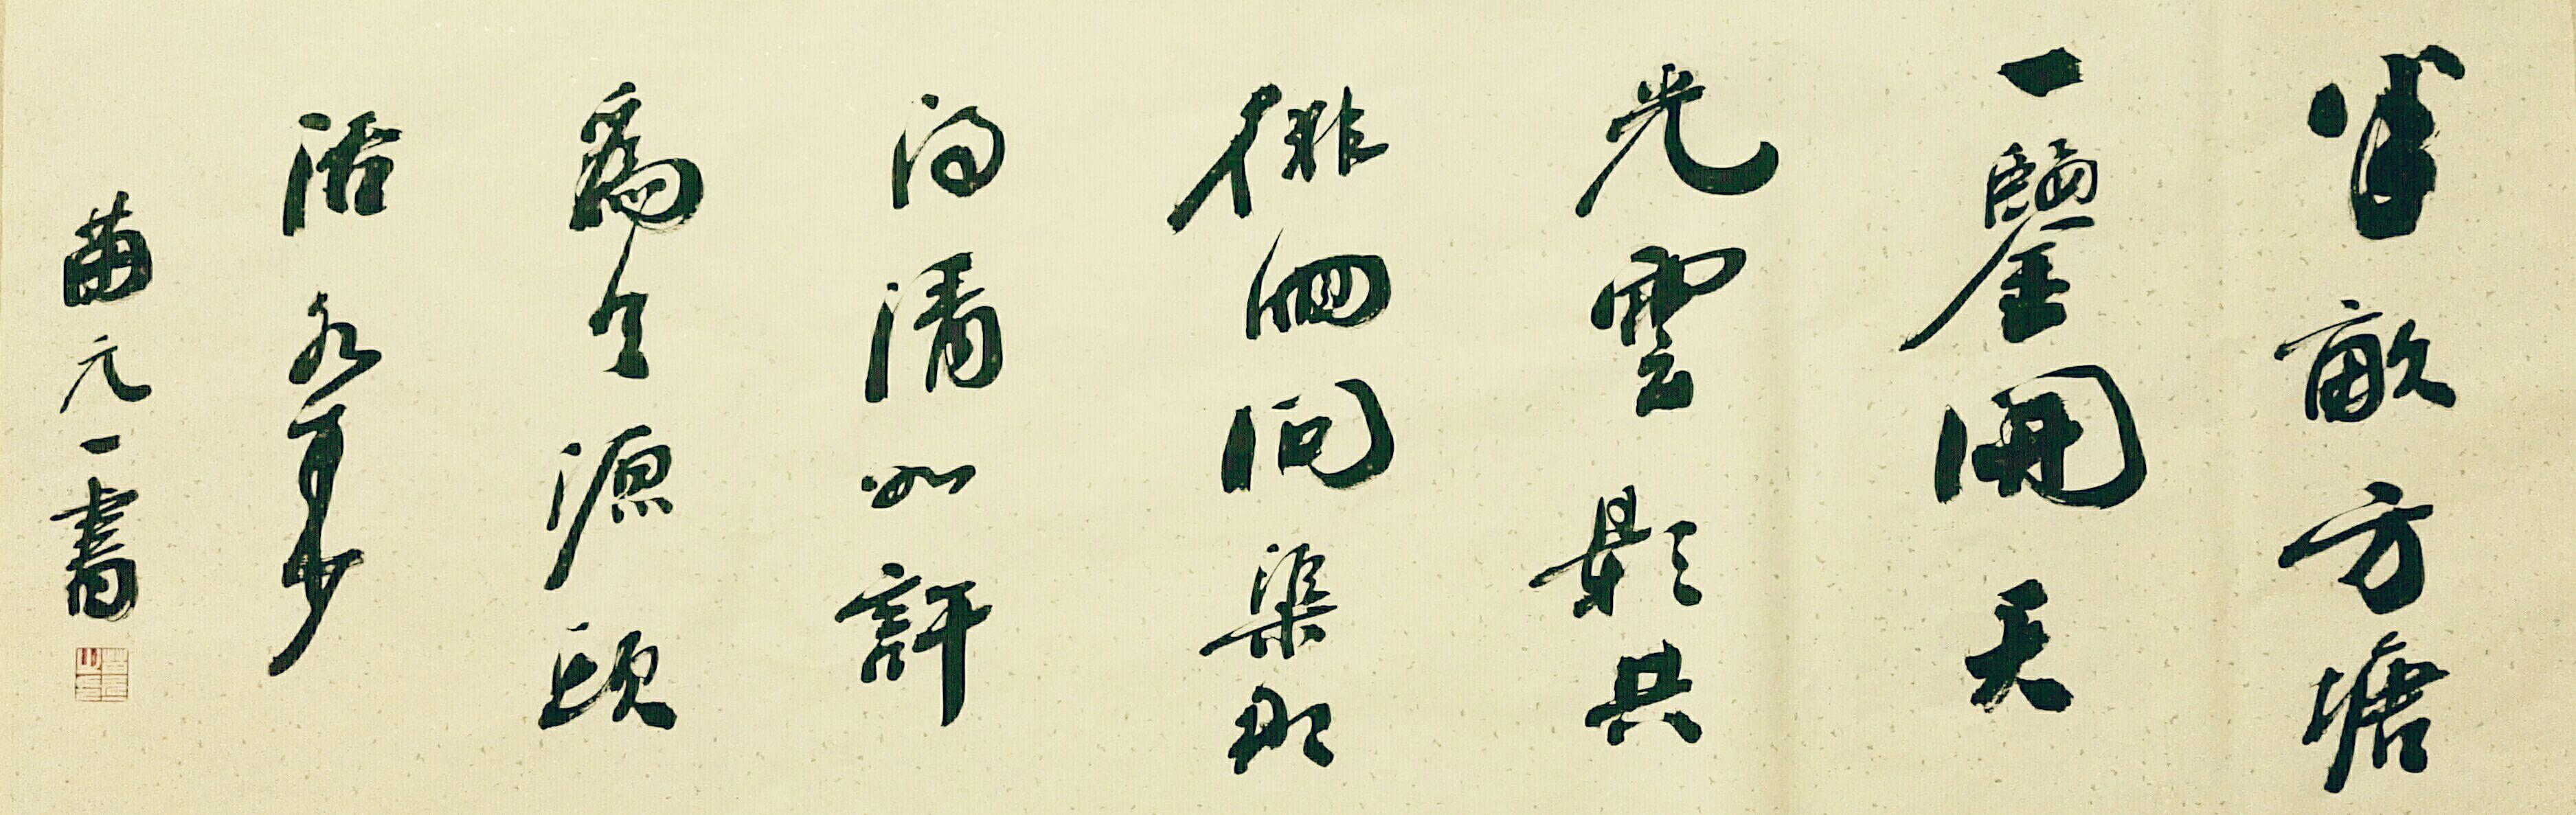 半畝方塘
一鑒開天
光雲影共
徘徊問渠那
得清如許
爲有源頭
活水來
元一書